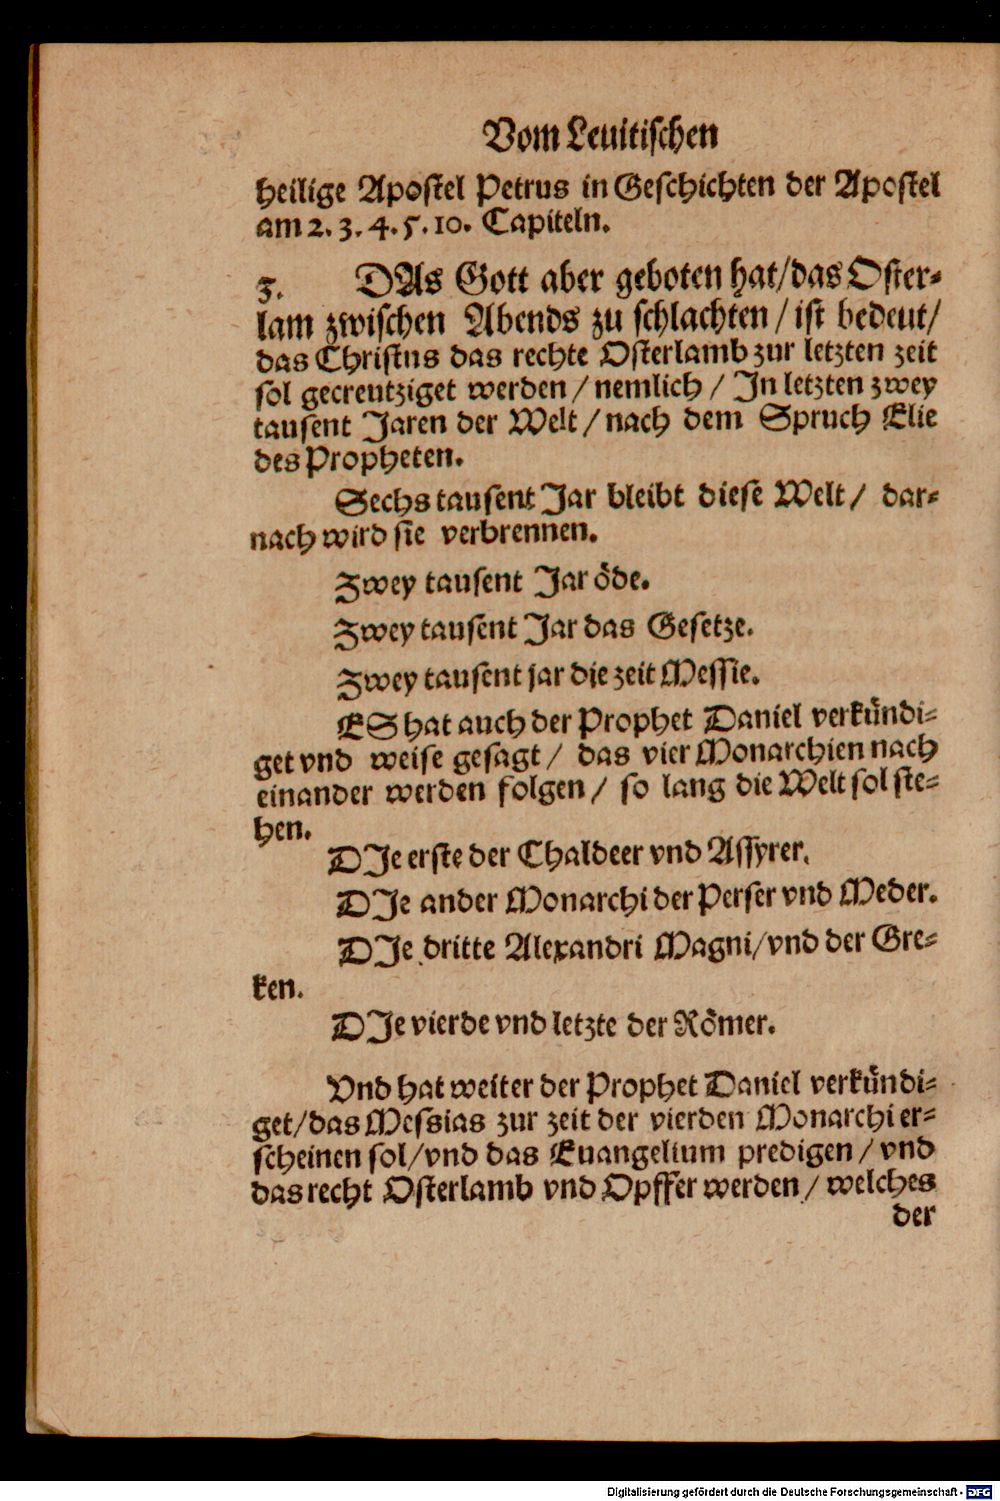 Vom Leuitischen
heilige Apostel Petrus in Geschichten der Apostel
am 2. 3. 4. 5. 10. Capiteln.
3. DAs Gott aber geboten hat/das Oster-
lam zwischen Abends zu schlachten / ist bedeut/
das Christus das rechte Osterlamb zur letzten zeit
sol gecreutziget werden / nemlich / In letzten zwey
tausent Jaren der Welt / nach dem Spruch Elie
des Propheten.
Sechs tausent Jar bleibt diese Welt / dar-
nach wird sie verbrennen.
Zwey tausent Jar öde.
Zwey tausent Jar das Gesetze.
Zwey tausent jar die zeit Messie.
ES hat auch der Prophet Daniel verkündi-
get vnd weise gesagt / das vier Monarchien nach
einander werden folgen / so lang die Welt sol ste-
hen.
DIe erste der Chaldeer vnd Assyrer.
DIe ander Monarchi der Perser vnd Meder.
DIe dritte Alexandri Magni/vnd der Gre-
ken.
DIe vierde vnd letzte der Römer.
Vnd hat weiter der Prophet Daniel verkündi-
get/das Messias zur zeit der vierden Monarchi er-
scheinen sol/vnd das Euangelium predigen / vnd
das recht Osterlamb vnd Opffer werden / welches
der
Digitalisierung gefördert durch die Deutsche Forschungsgemeinschaft - DFG